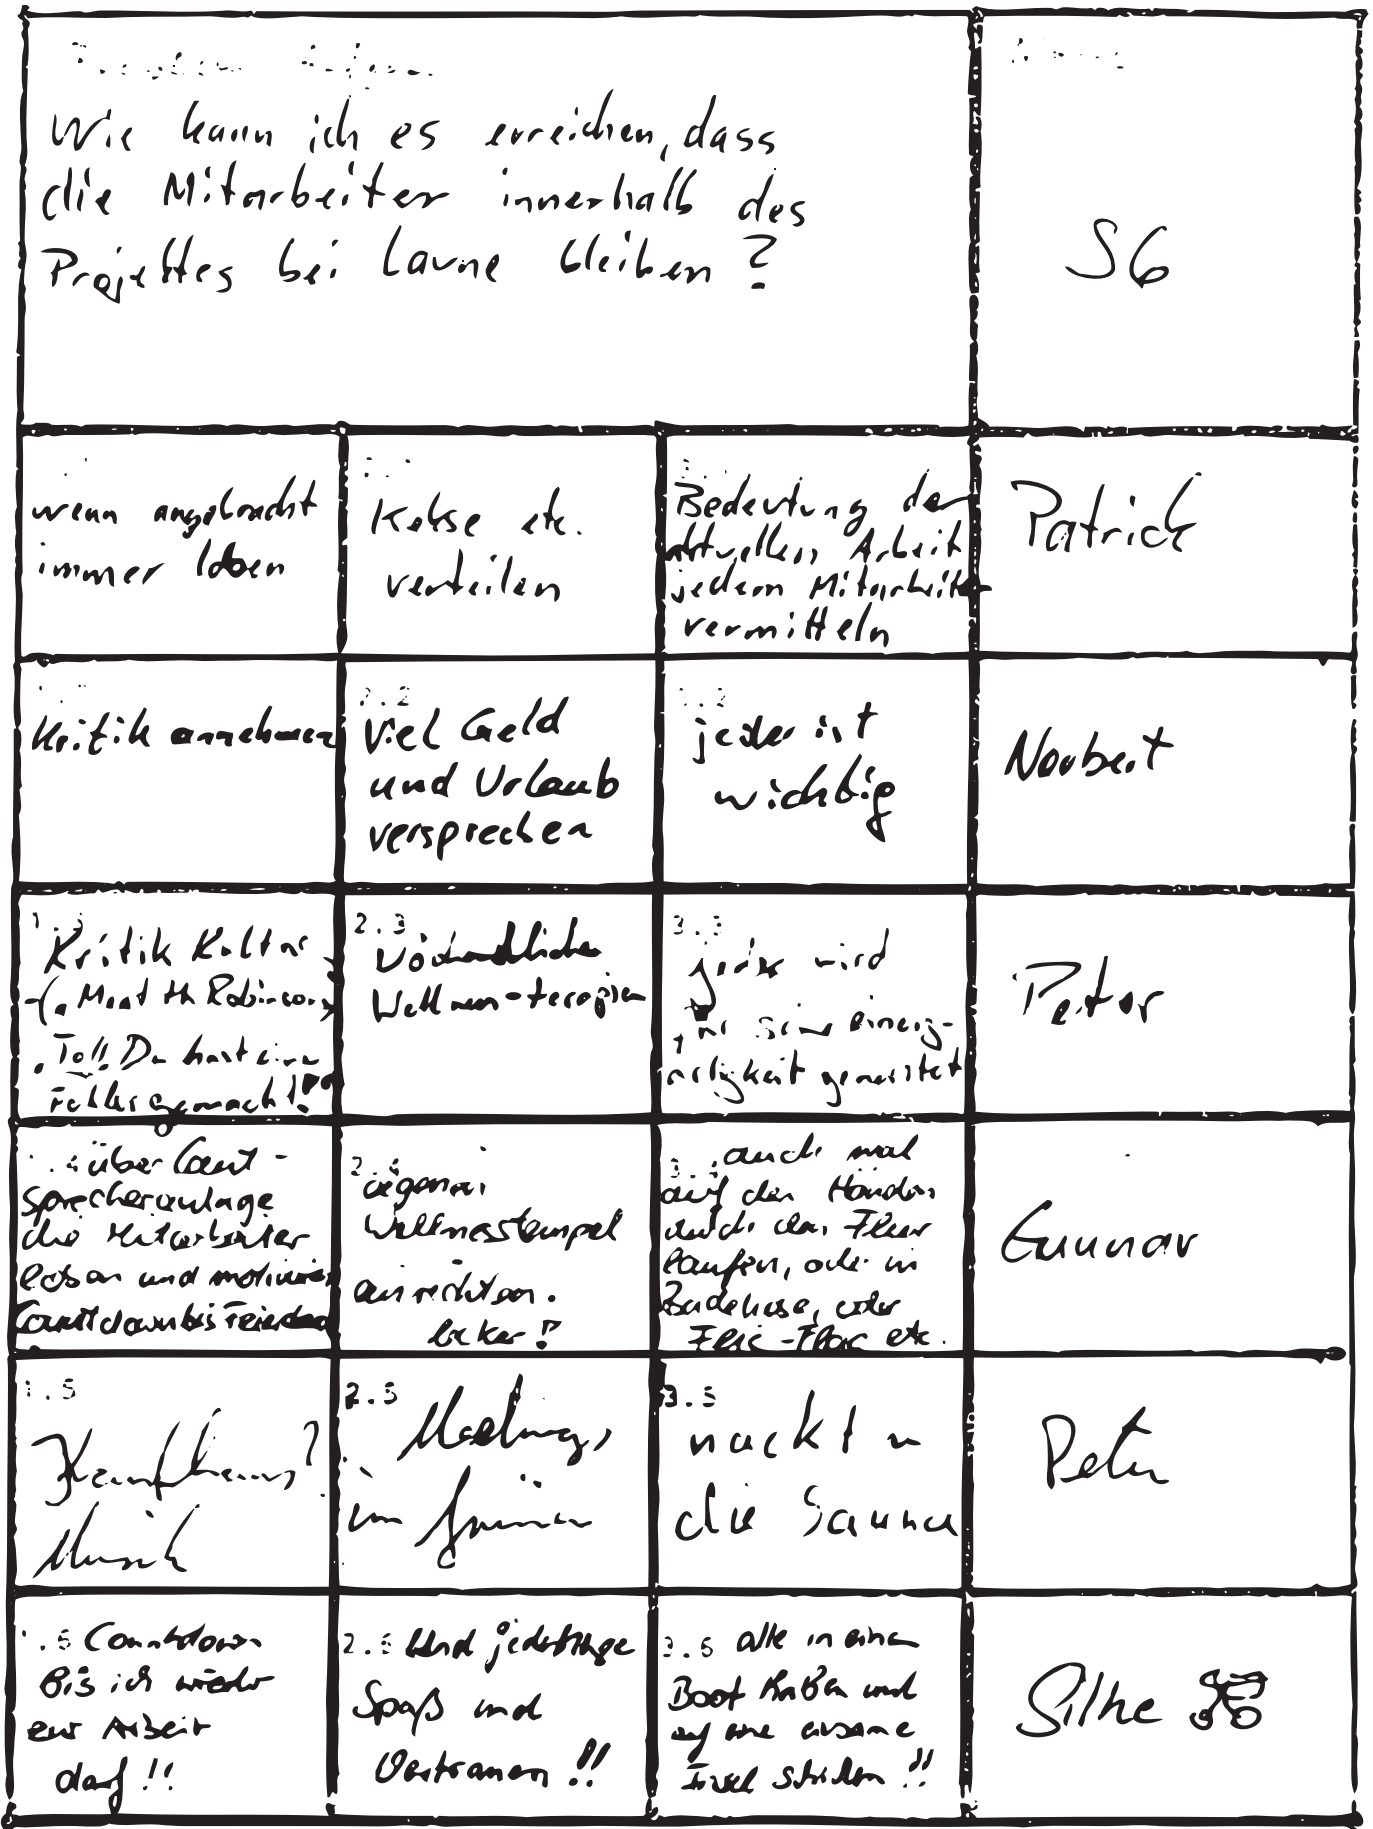 Wie kann ich es erreichen, dass
die Mitarbeiter innerhalb des
Projektes bei Laune bleiben?
S6
wenn angebracht
immer loben
Kekse etc.
verteilen
Bedeutung der
aktuellen Arbeit
jedem Mitarbeiter
vermitteln
Patrick
Kritik annehmen
2.2
Viel Geld
und Urlaub
versprechen
jeder ist
wichtig
Norbert
1.3
Kritik Kultur
"Toll! Du hast ein
Fehler gemacht!"
2.3
Wöchentliche
3.3
Jeder wird
Peter
über Laut-
sprecheranlage
die Mitarbeiter
loben und motivieren
Countdown bis Feierabend
2.4
eigenen
Wellnesstempel
einrichten.
lecker!
auch mal
auf den Händen
durch den Flur
laufen, oder in
Badehose, oder
Flic-Flac etc.
Gunnar
1.5
Musik
2.5
Meeting
im Grünen
3.5
nackt in
die Sauna
Peter
.6 Countdown
Bis ich wieder
zur Arbeit
darf!!
2.6 Und jede Menge
Spaß und
Vertrauen!!
3.6 alle in einen
Boot haben und
auf eine einsame
Insel schicken!!
Silke